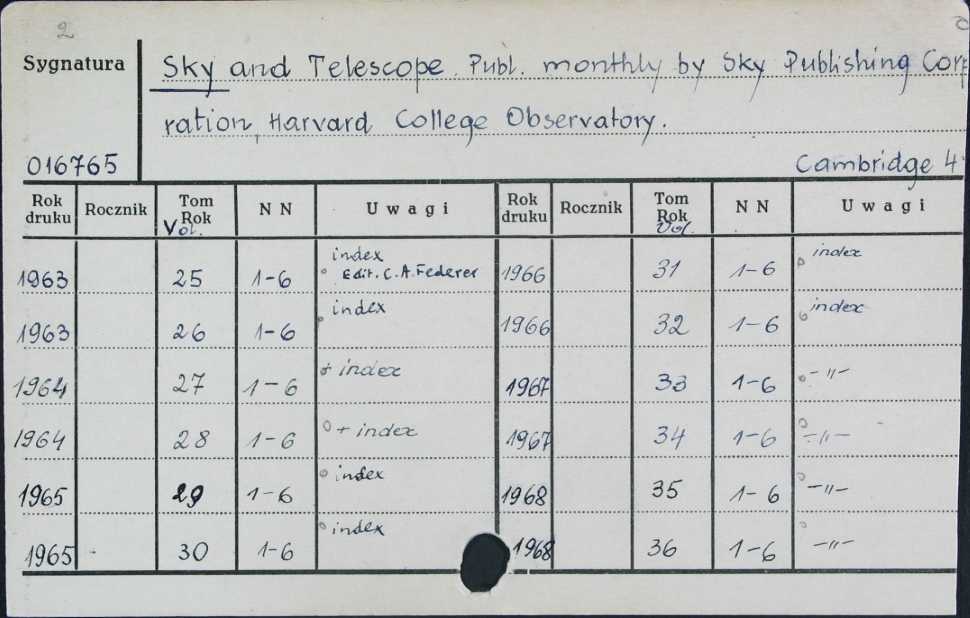 2
Sygnatura
Sky and Telescope. Publ. monthly by Sky Publishing Corp
ration, Harvard College Observatory.
016765
Cambridge 4
Rok druku Rocznik Tom Rok Vol. N N Uwagi Rok druku Rocznik Tom Rok Vol. N N Uwagi
1963 25 1-6 index Edit. C. A. Federer 1966 31 1-6 index
1963 26 1-6 index 1966 32 1-6 index
1964 27 1-6 + index 1967 33 1-6 -"-
1964 28 1-6 + index 1967 34 1-6 -"-
1965 29 1-6 index 1968 35 1-6 -"-
1965 30 1-6 index 1968 36 1-6 -"-